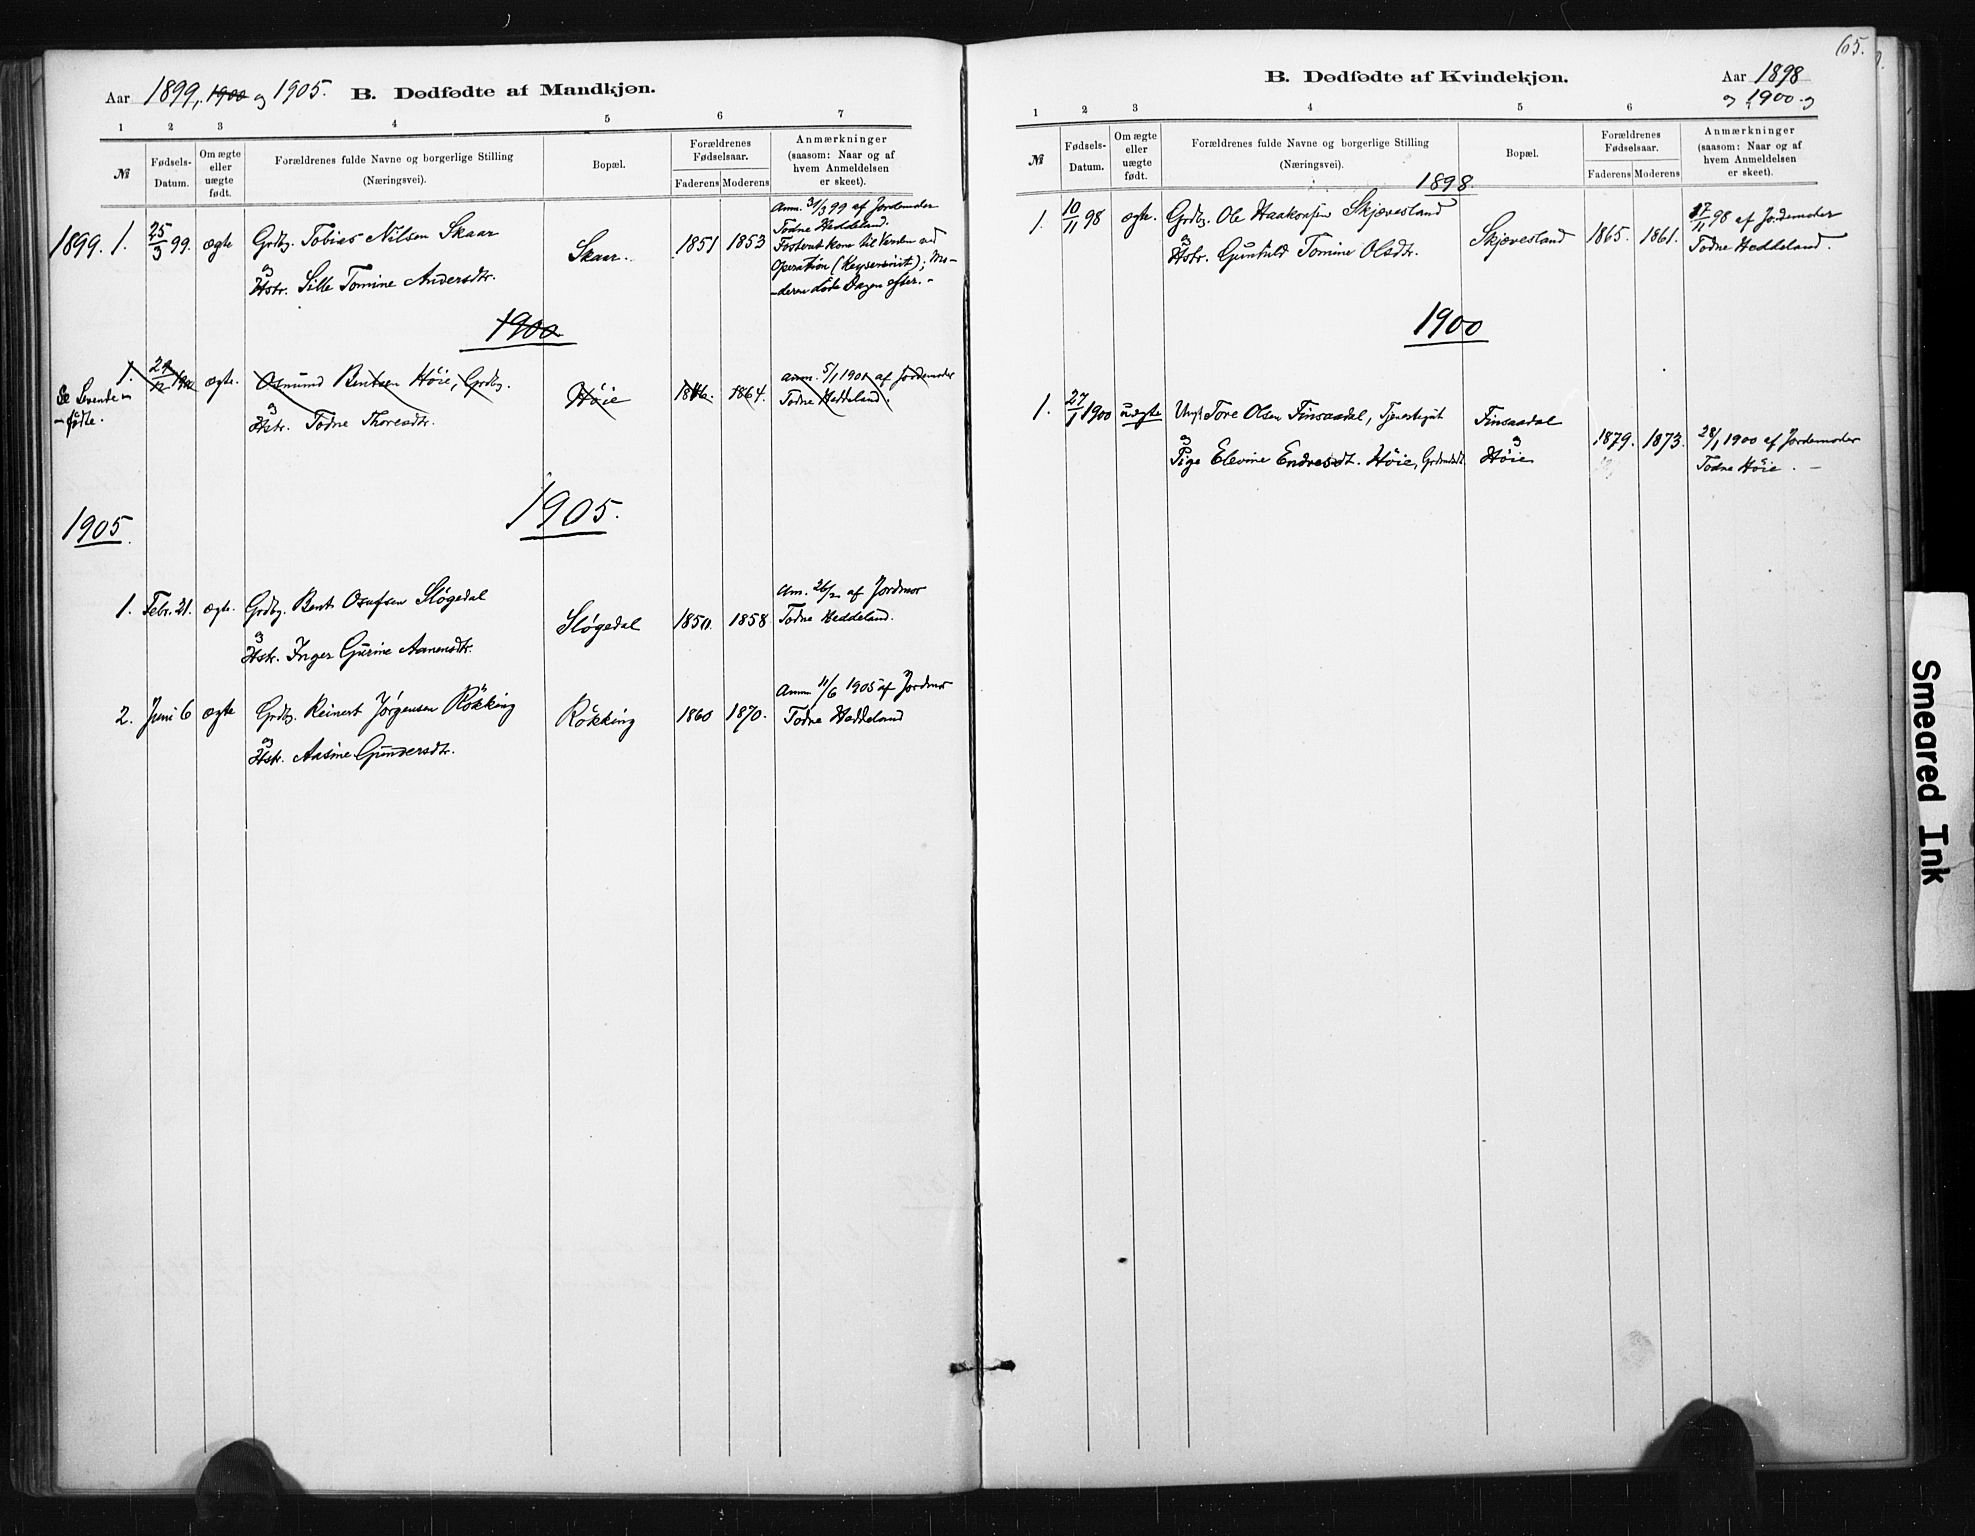 Aar 1899, 1900 og 1905. B. Dødfødte af Mandkjøn.
1 2 3 4 5 6 7
№
Fødsels-Datum.
Om ægte eller uægte født.
Forældrenes fulde Navne og borgerlige Stilling
(Næringsvei).
Bopæl.
Forældrenes Fødselsaar.
Faderens Moderens
Anmærkninger
(saasom: Naar og af
hvem Anmeldelsen
er skeet).
1899. 1. 25/3 99. ægte Grdbg. Tobias Nilsen Skaar
og
Hstr. Sille Tomine Andersdtr.
Skaar. 1851 1853
Anm. 31/3 99 af Jordemoder
Todne Heddeland.
Fosteret kom til Verden ved
Operation (Keysersnit); Mo-
-deren døde Dagen efter. -
1900
Se Levende
-fødte.
1. ægte. Osmund Bentsen Höie, Grdbg.
og
Hstr. Todne Thoresdtr.
Höie 1864.
Anm. 5/1 1901 af Jordemoder
Todne Heddeland.
1905
1905.
1. Febr. 21. ægte. Grdbg. Bent Osufsen Sløgedal
og
Hstr. Inger Gurine Aanensdtr.
Sløgedal 1850. 1858
Anm. 26/2 af Jordmor
Todne Heddeland.
2. Juni 6 ægte Grdbg. Reinert Jørgensen Røkking
og
Hstr. Aasine Gundersdtr.
Røkking 1860 1870.
Anm. 11/6 1905 af Jordmor
Todne Heddeland
65.
B. Dødfødte af Kvindekjøn. Aar 1898
og 1900. og
1 2 3 4 5 6 7
№
Fødsels-Datum.
Om ægte eller uægte født.
Forældrenes fulde Navne og borgerlige Stilling
(Næringsvei).
Bopæl.
Forældrenes Fødselsaar.
Faderens Moderens
Anmærkninger
(saasom: Naar og af
hvem Anmeldelsen
er skeet).
1898.
1. 10/11 98 ægte. Grdbg. Ole Haakonsen Skjævesland
og
Hstr. Gunhild Tomine Olsdtr.
Skjævesland 1865. 1861.
17/11 98 af Jordemoder
Todne Heddeland.
1900
1. 27/1 1900 uægte Ungk. Tore Olsen Finsaadal, Tjenestegut
og
Pige Elevine Endresdt. Höie,
Finsaadal
og
Höie
1879. 1873.
28/1 1900 af Jordemoder
Todne Höie. -
Smeared Ink